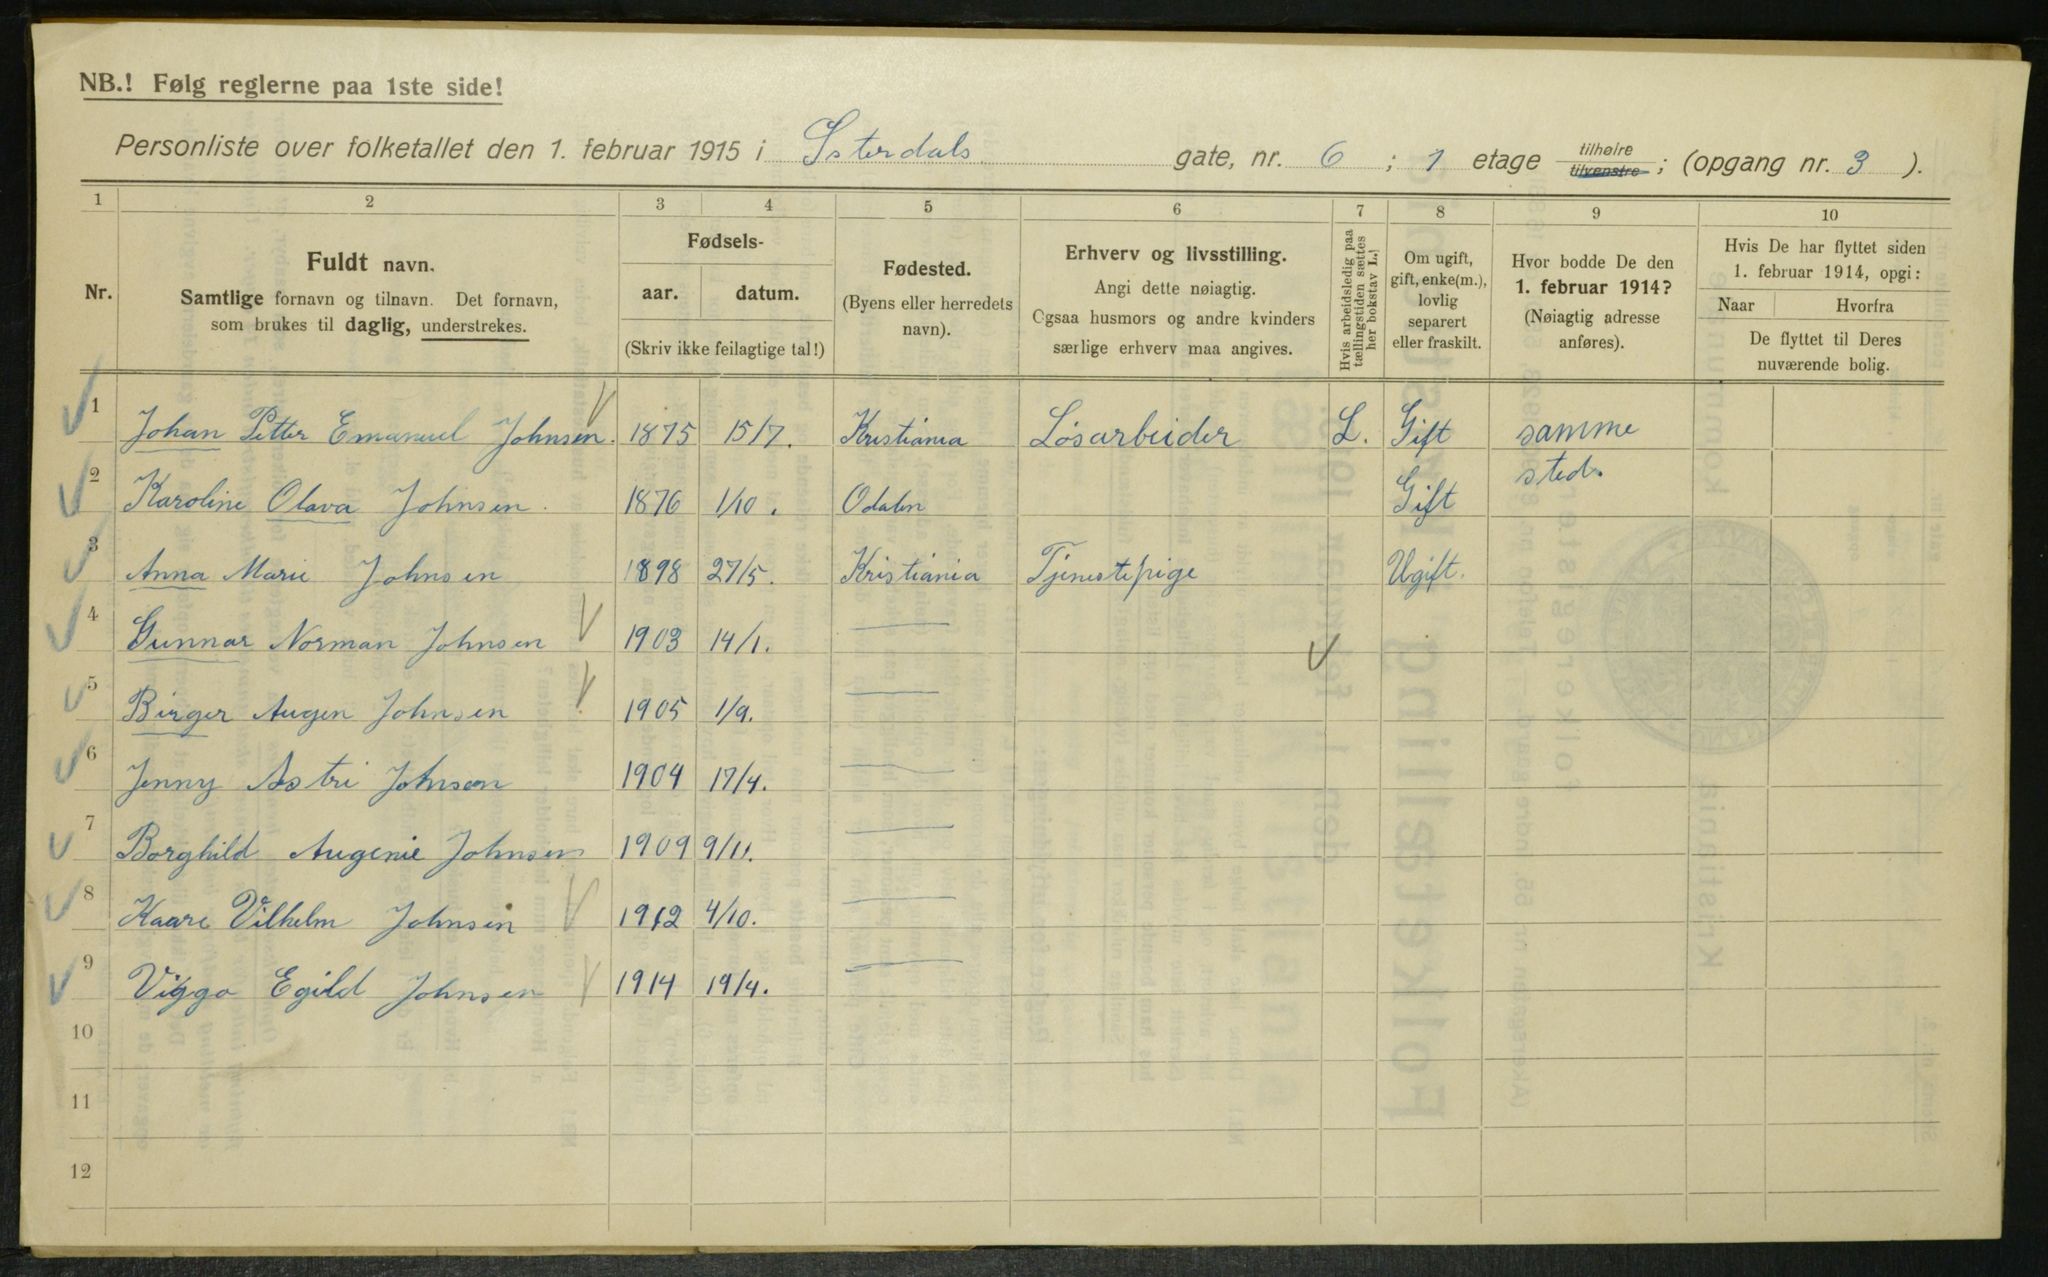 NB.! Følg reglerne paa 1ste side!
Personliste over folketallet den 1. februar 1915 i Østerdals gate, nr. 6 ; 1 etage tilhøire tilvenstre ; (opgang nr. 3 ).
1 2 3 4 5 6 7 8 9 10
Nr.
Fuldt navn.
Samtlige fornavn og tilnavn. Det fornavn,
som brukes til daglig, understrekes.
Fødsels-
aar. datum.
(Skriv ikke feilagtige tal!)
Fødested.
(Byens eller herredets
navn).
Erhverv og livsstilling.
Angi dette nøiagtig.
Ogsaa husmors og andre kvinders
særlige erhverv maa angives.
Hvis arbeidsledig paa
tællingstiden sættes
her bokstav L.!
Om ugift,
gift, enke(m.),
lovlig
separert
eller fraskilt.
Hvor bodde De den
1. februar 1914?
(Nøiagtig adresse
anføres).
Hvis De har flyttet siden
1. februar 1914, opgi:
Naar Hvorfra
De flyttet til Deres
nuværende bolig.
1 Johan Petter Emanuel Johnsen. 1875 15/7. Kristiania Løsarbeider L. Gift samme
2 Karoline Olava Johnsen. 1876 1/10. Odalen Gift sted.
3 Anna Marie Johnsen 1898 27/5. Kristiania Tjenestepige Ugift.
4 Gunnar Norman Johnsen 1903 14/1. —
5 Birger Augen Johnsen 1905 1/9. —
6 Jenny Astri Johnsen 1904 17/4. —
7 Borghild Augenie Johnsen 1909 9/11. —
8 Kaare Vilhelm Johnsen 1912 4/10. —
9 Viggo Egild Johnsen 1914 19/4. —
10
11
12